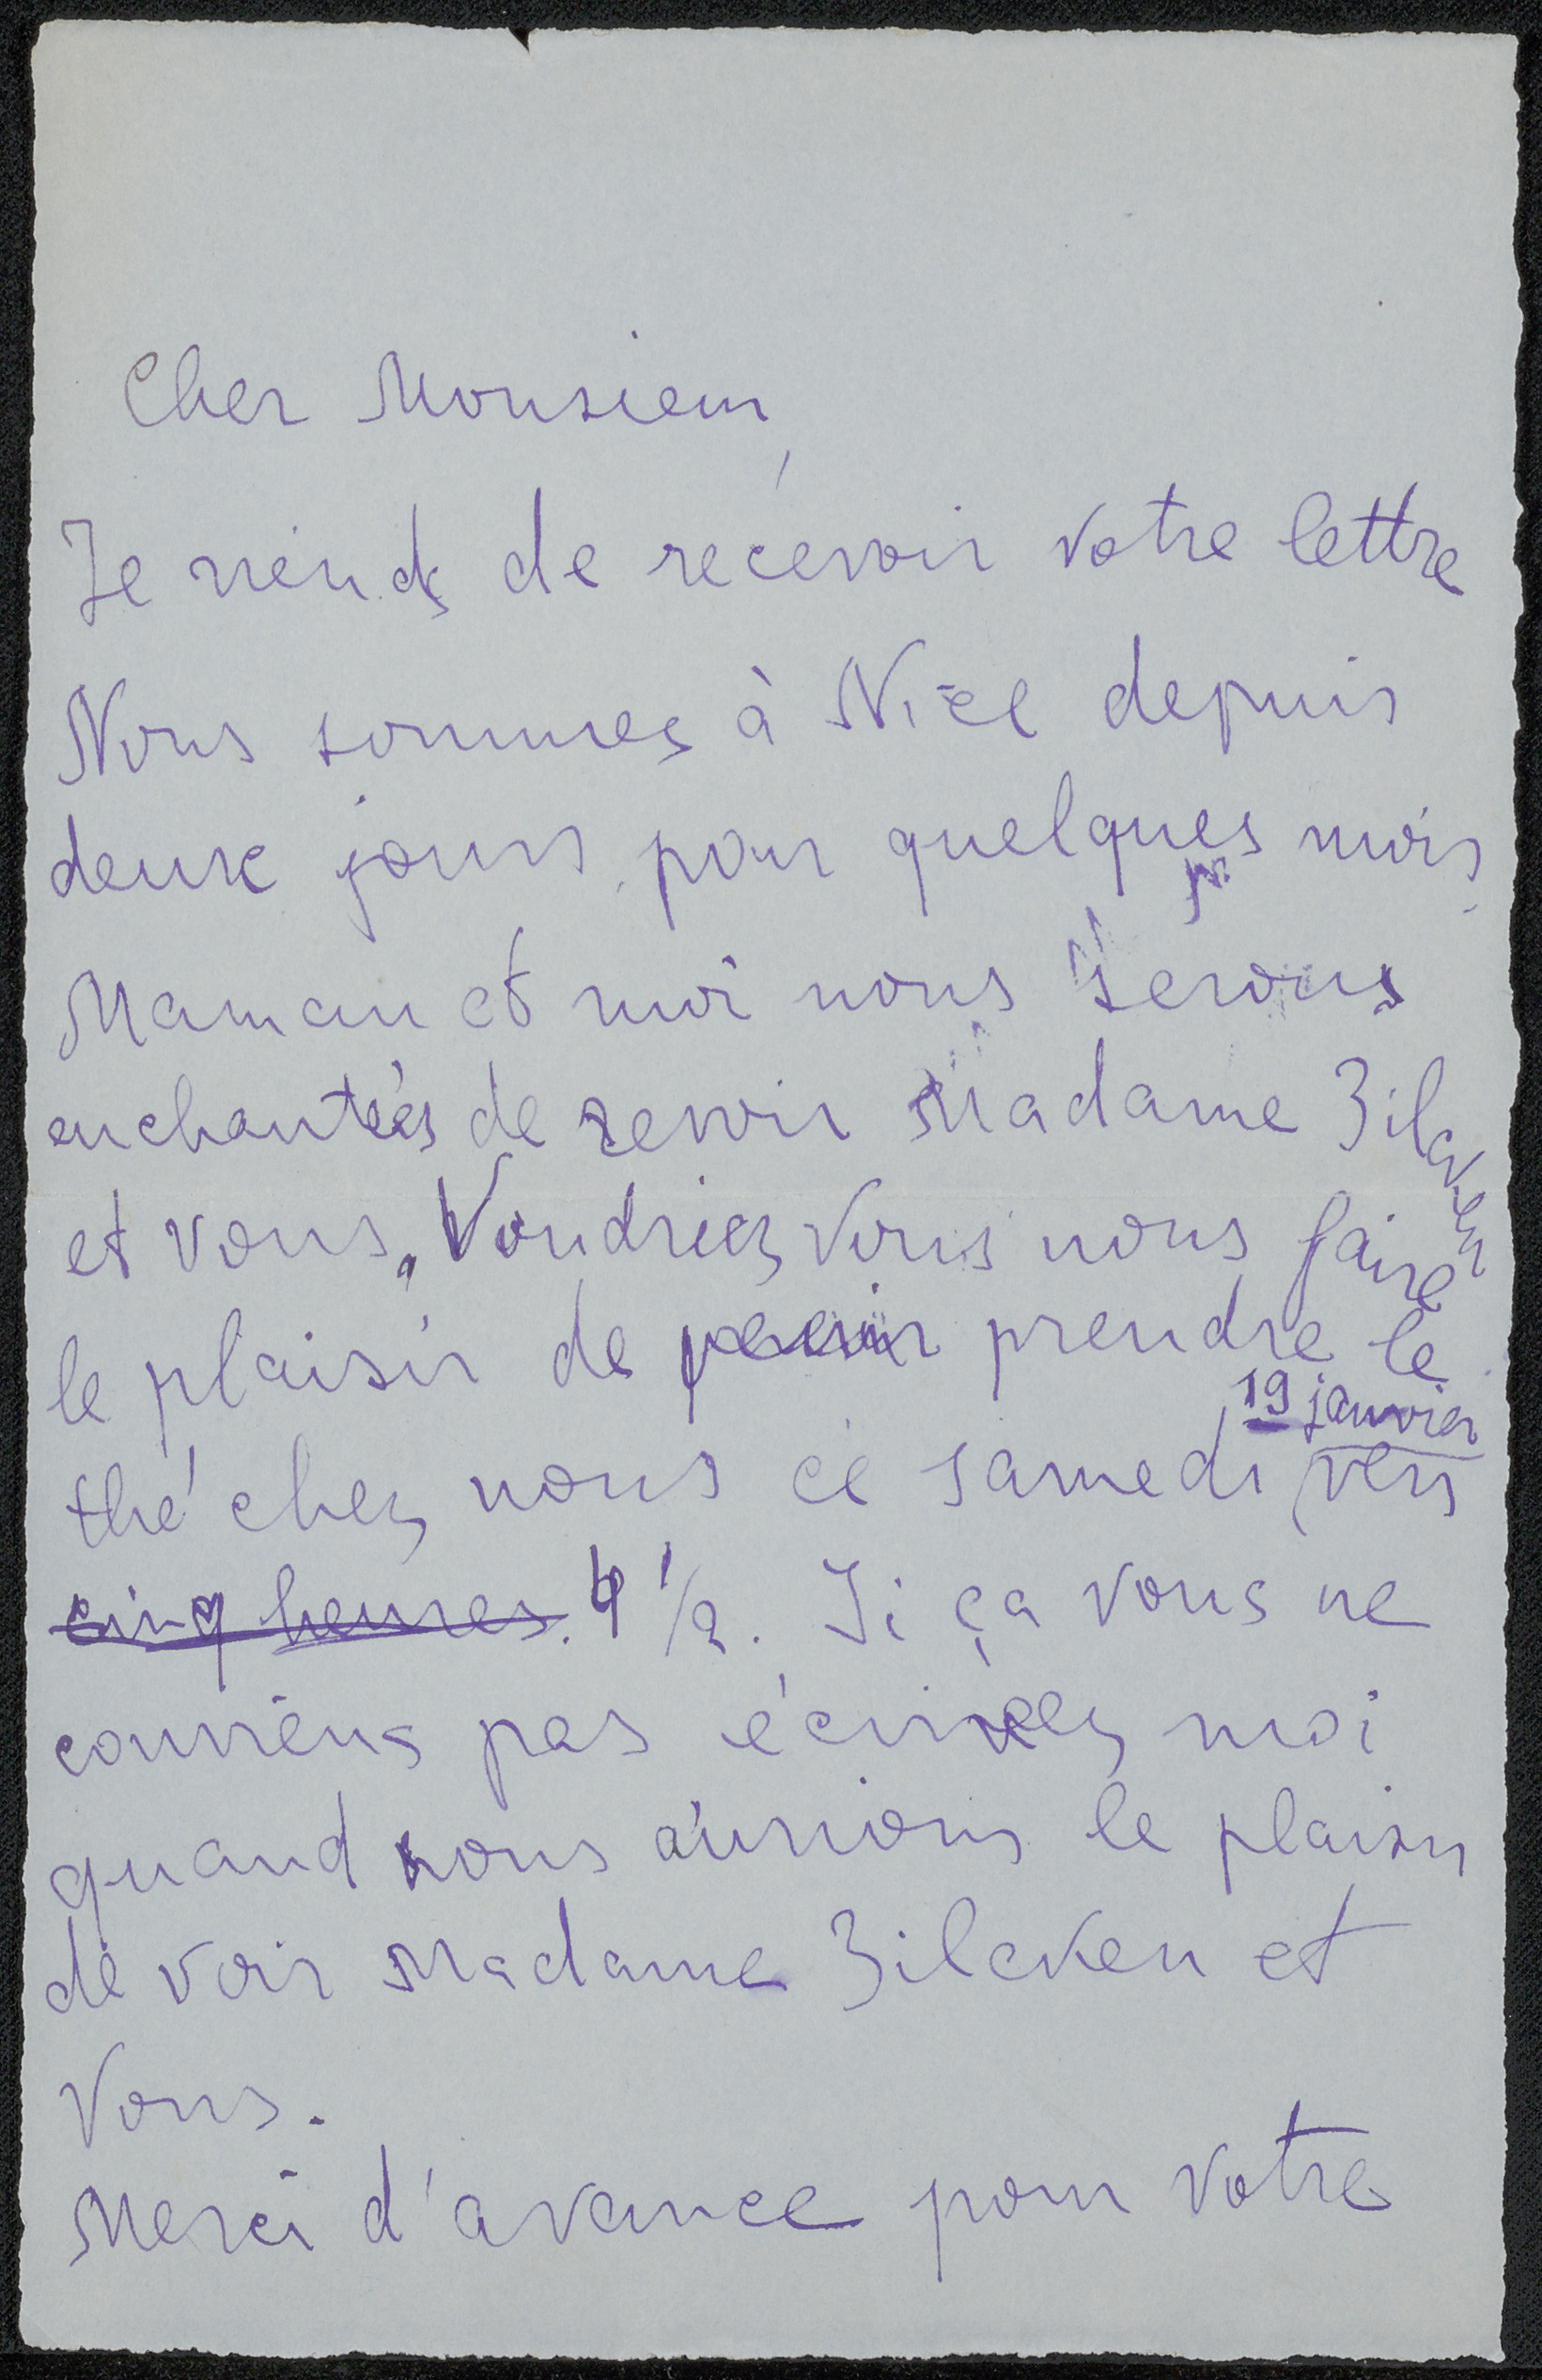 Cher Monsieur,
Je viends de recevoir votre lettre
Nous sommes à Nice depuis
deux jours pour quelques mois.
Maman et moi nous serons
enchantées de revoir Madame Zilcken
et vous. Voudriez vous nous faire
le plaisir de prendre le
thé chez nous ce samedi 19 janvier vers
cinq heures. 4 1/2. Si ça vous ne
conviens pas écrivez moi
quand nous aurions le plaisir
de voir Madame Zilcken et
Vous.
Merci d'avance pour votre